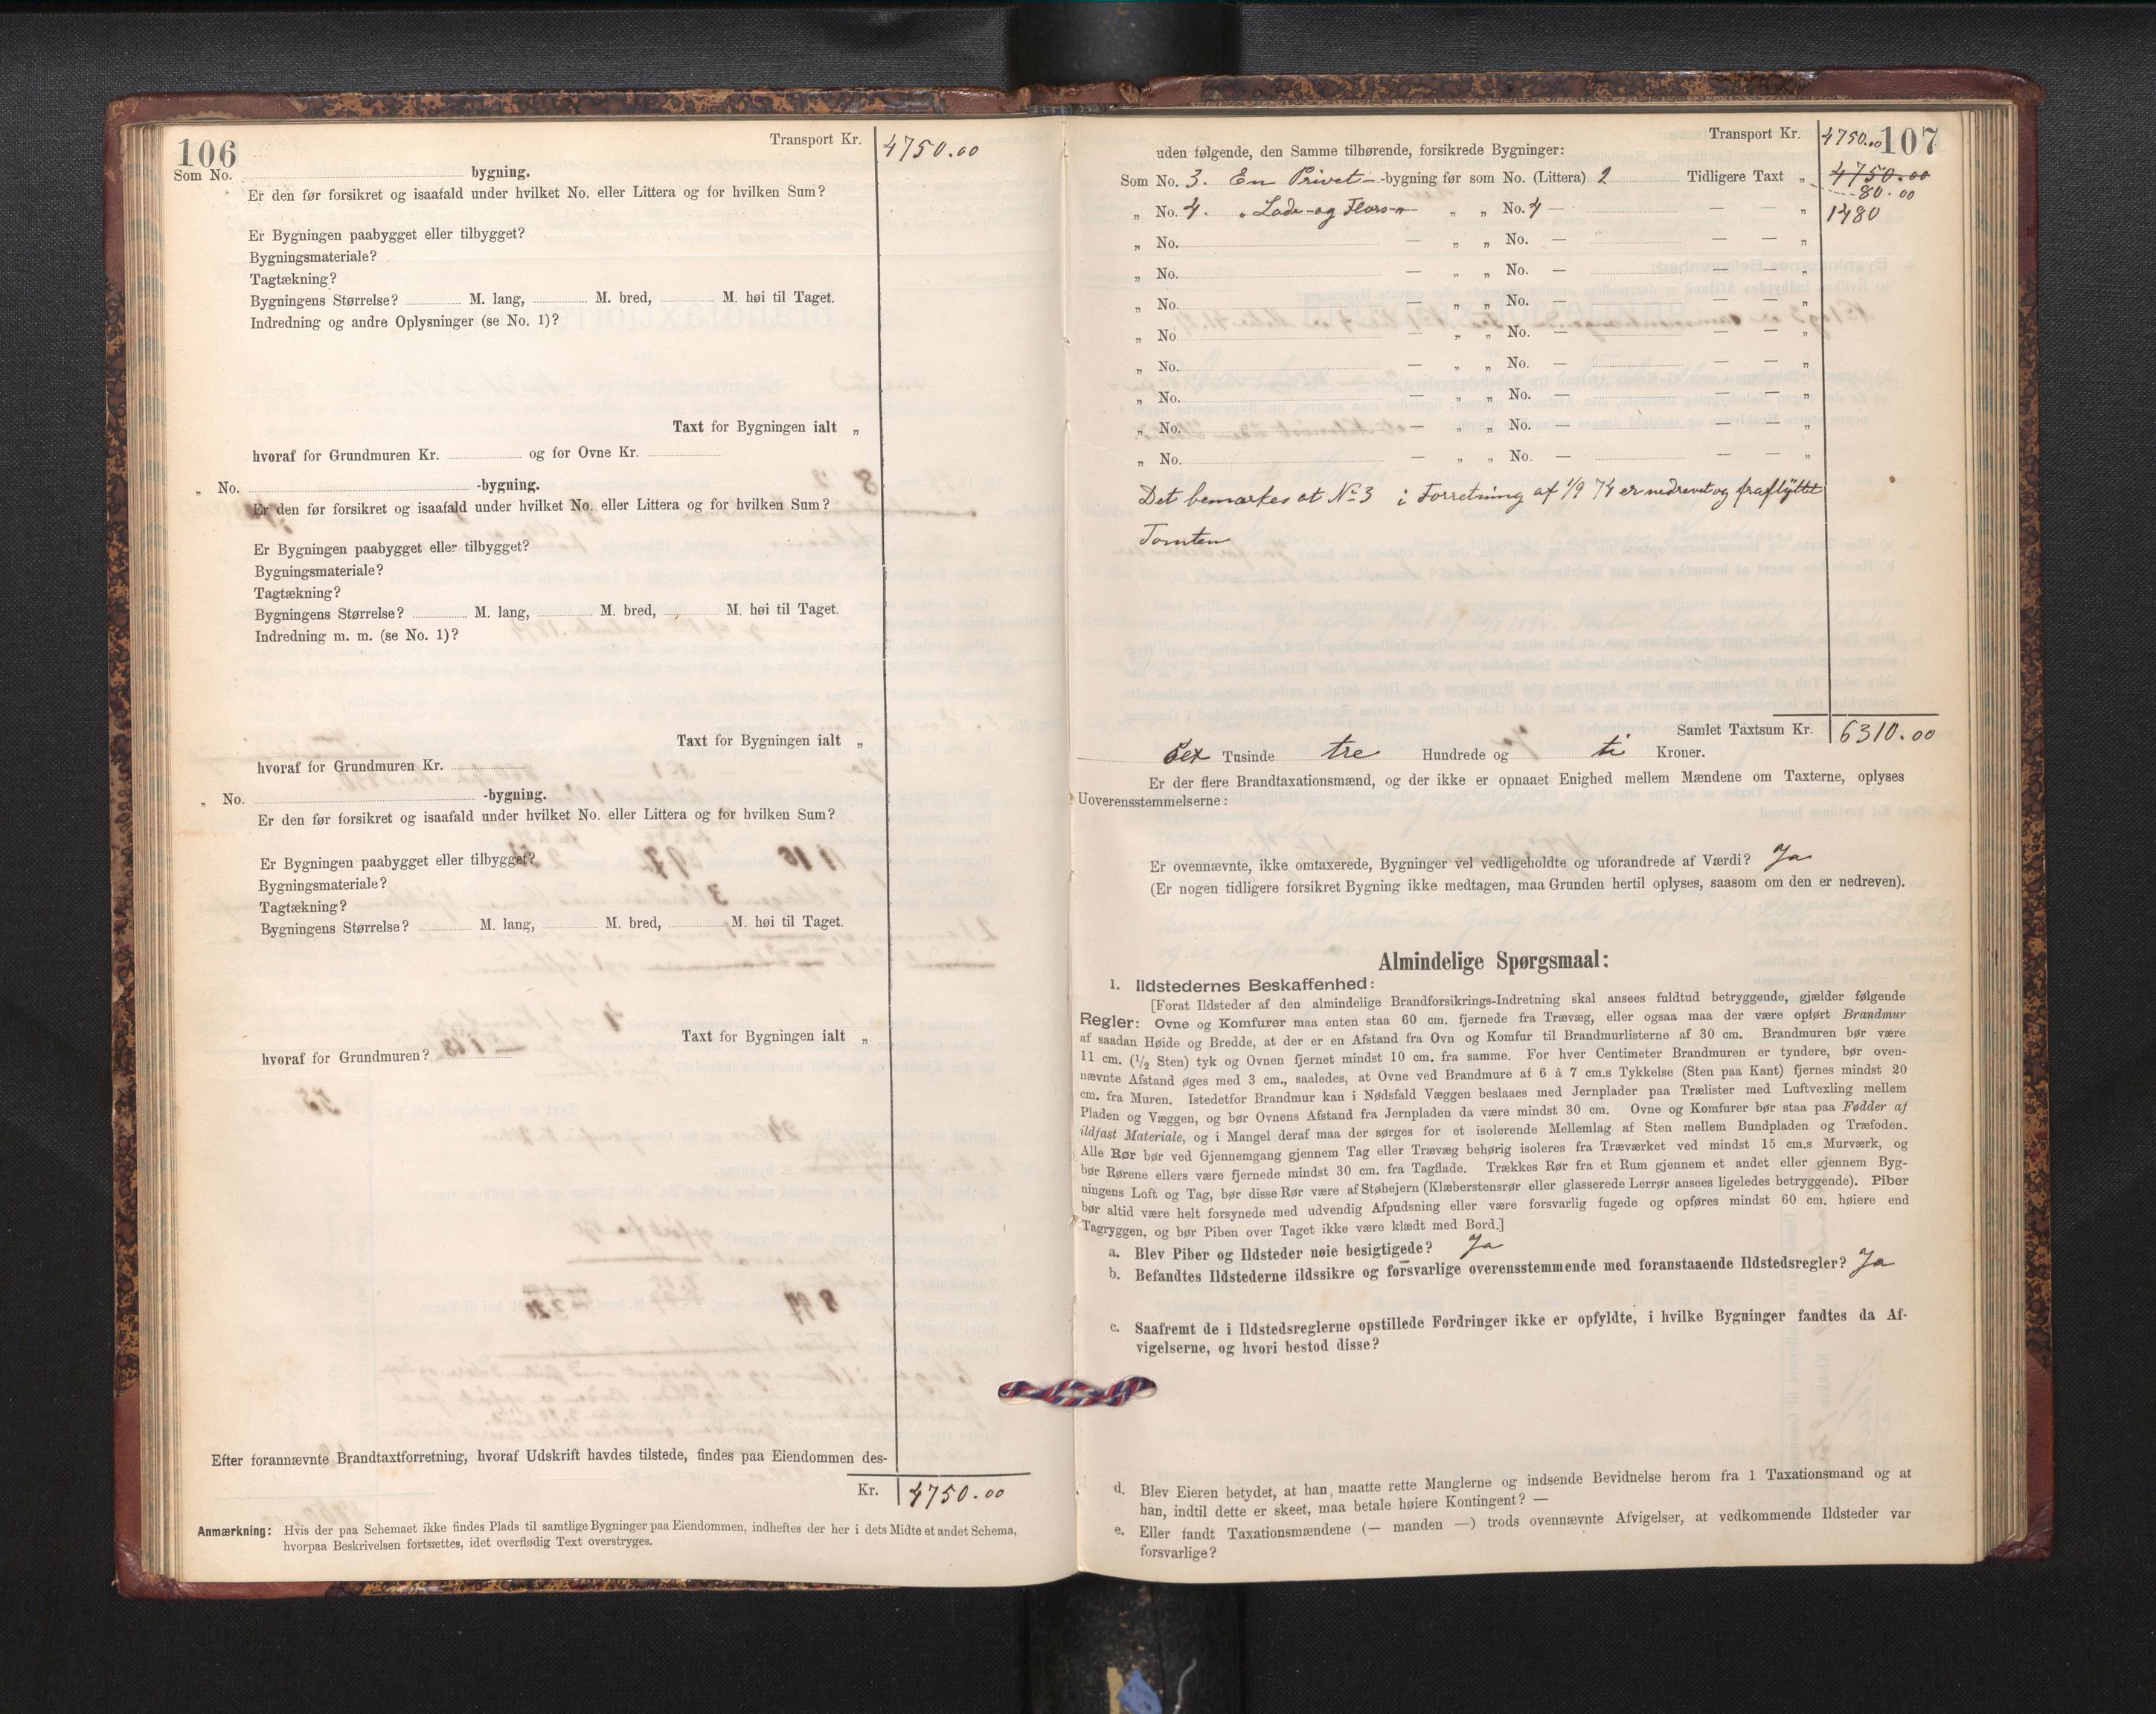 106
Transport Kr. 4750.00
Som No. bygning.
Er den før forsikret og isaafald under hvilket No. eller Littera og for hvilken Sum?
Er Bygningen paabygget eller tilbygget?
Bygningsmateriale?
Tagtækning?
Bygningens Størrelse? M. lang, M. bred, M. høi til Taget.
Indredning og andre Oplysninger (se No. 1)?
Taxt for Bygningen ialt „
hvoraf for Grundmuren Kr. og for Ovne Kr.
„ No. -bygning.
Er den før forsikret og isaafald under hvilket No. eller Littera og for hvilken Sum?
Er Bygningen paabygget eller tilbygget?
Bygningsmateriale?
Tagtækning?
Bygningens Størrelse? M. lang, M. bred, M. høi til Taget.
Indredning m. m. (se No. 1)?
Taxt for Bygningen ialt „
hvoraf for Grundmuren Kr.
„ No. -bygning.
Er den før forsikret og isaafald under hvilket No. eller Littera og for hvilken Sum?
Er Bygningen paabygget eller tilbygget?
Bygningsmateriale?
Tagtækning?
Bygningens Størrelse? M. lang, M. bred, M. høi til Taget.
Taxt for Bygningen ialt „
hvoraf for Grundmuren?
Efter forannævnte Brandtaxtforretning, hvoraf Udskrift havdes tilstede, findes paa Eiendommen des-
Kr. 4750.00
Anmærkning: Hvis der paa Schemaet ikke findes Plads til samtlige Bygninger paa Eiendommen, indheftes der her i dets Midte et andet Schema,
hvorpaa Beskrivelsen fortsættes, idet overflødig Text overstryges.
Transport Kr. 4750.00 107
uden følgende, den Samme tilhørende, forsikrede Bygninger:
Som No. 3. En Privet- -bygning før som No. (Littera) 2 Tidligere Taxt „ 4750.00
80.00
„ No. 4. „ Lade- og Flors- — „ „ No. 4 — — — „ 1480
„ No. — „ „ No. — — — „
„ No. — „ „ No. — — — „
„ No. — „ „ No. — — — „
„ No. — „ „ No. — — — „
„ No. — „ „ No. — — — „
„ No. — „ „ No. — — — „
„ No. — „ „ No. — — — „
„ No. — „ „ No. — — — „
Det bemærkes at No 3 i Forretning af 1/9 74 er nedrevet og fraflyttet
Tomten
Samlet Taxtsum Kr. 6310.00
Sex Tusinde tre Hundrede og ti Kroner.
Er der flere Brandtaxationsmænd, og der ikke er opnaaet Enighed mellem Mændene om Taxterne, oplyses
Uoverensstemmelserne:
Er ovennævnte, ikke omtaxerede, Bygninger vel vedligeholdte og uforandrede af Værdi? Ja
(Er nogen tidligere forsikret Bygning ikke medtagen, maa Grunden hertil oplyses, saasom om den er nedreven).
Almindelige Spørgsmaal:
1. Ildstedernes Beskaffenhed:
[Forat Ildsteder af den almindelige Brandforsikrings-Indretning skal ansees fuldtud betryggende, gjælder følgende
Regler: Ovne og Komfurer maa enten staa 60 cm. fjernede fra Trævæg, eller ogsaa maa der være opført Brandmur
af saadan Høide og Bredde, at der er en Afstand fra Ovn og Komfur til Brandmurlisterne af 30 cm. Brandmuren bør være
11 cm. (1/2 Sten) tyk og Ovnen fjernet mindst 10 cm. fra samme. For hver Centimeter Brandmuren er tyndere, bør oven-
nævnte Afstand øges med 3 cm., saaledes, at Ovne ved Brandmure af 6 à 7 cm.s Tykkelse (Sten paa Kant) fjernes mindst 20
cm. fra Muren. Istedetfor Brandmur kan i Nødsfald Væggen beslaaes med Jernplader paa Trælister med Luftvexling mellem
Pladen og Væggen, og bør Ovnens Afstand fra Jernpladen da være mindst 30 cm. Ovne og Komfurer bør staa paa Fødder af
ildfast Materiale, og i Mangel deraf maa der sørges for et isolerende Mellemlag af Sten mellem Bundpladen og Træfoden.
Alle Rør bør ved Gjennemgang gjennem Tag eller Trævæg behørig isoleres fra Træværket ved mindst 15 cm.s Murværk, og
bør Rørene ellers være fjernede mindst 30 cm. fra Tagflade. Trækkes Rør fra et Rum gjennem et andet eller gjennem Byg-
ningens Loft og Tag, bør disse Rør være af Støbejern (Klæberstensrør eller glasserede Lerrør ansees ligeledes betryggende). Piber
bør altid være helt forsynede med udvendig Afpudsning eller være forsvarlig fugede og opføres mindst 60 cm. høiere end
Tagryggen, og bør Piben over Taget ikke være klædt med Bord.]
a. Blev Piber og Ildsteder nøie besigtigede? Ja
b. Befandtes Ildstederne ildssikre og forsvarlige overensstemmende med foranstaaende Ildstedsregler? Ja
c. Saafremt de i Ildstedsreglerne opstillede Fordringer ikke er opfyldte, i hvilke Bygninger fandtes da Af-
vigelserne, og hvori bestod disse?
d. Blev Eieren betydet, at han maatte rette Manglerne og indsende Bevidnelse herom fra 1 Taxationsmand og at
han, indtil dette er skeet, maa betale høiere Kontingent? —
e. Eller fandt Taxationsmændene (— manden —) trods ovennævnte Afvigelser, at vedkommende Ildsteder var
forsvarlige?